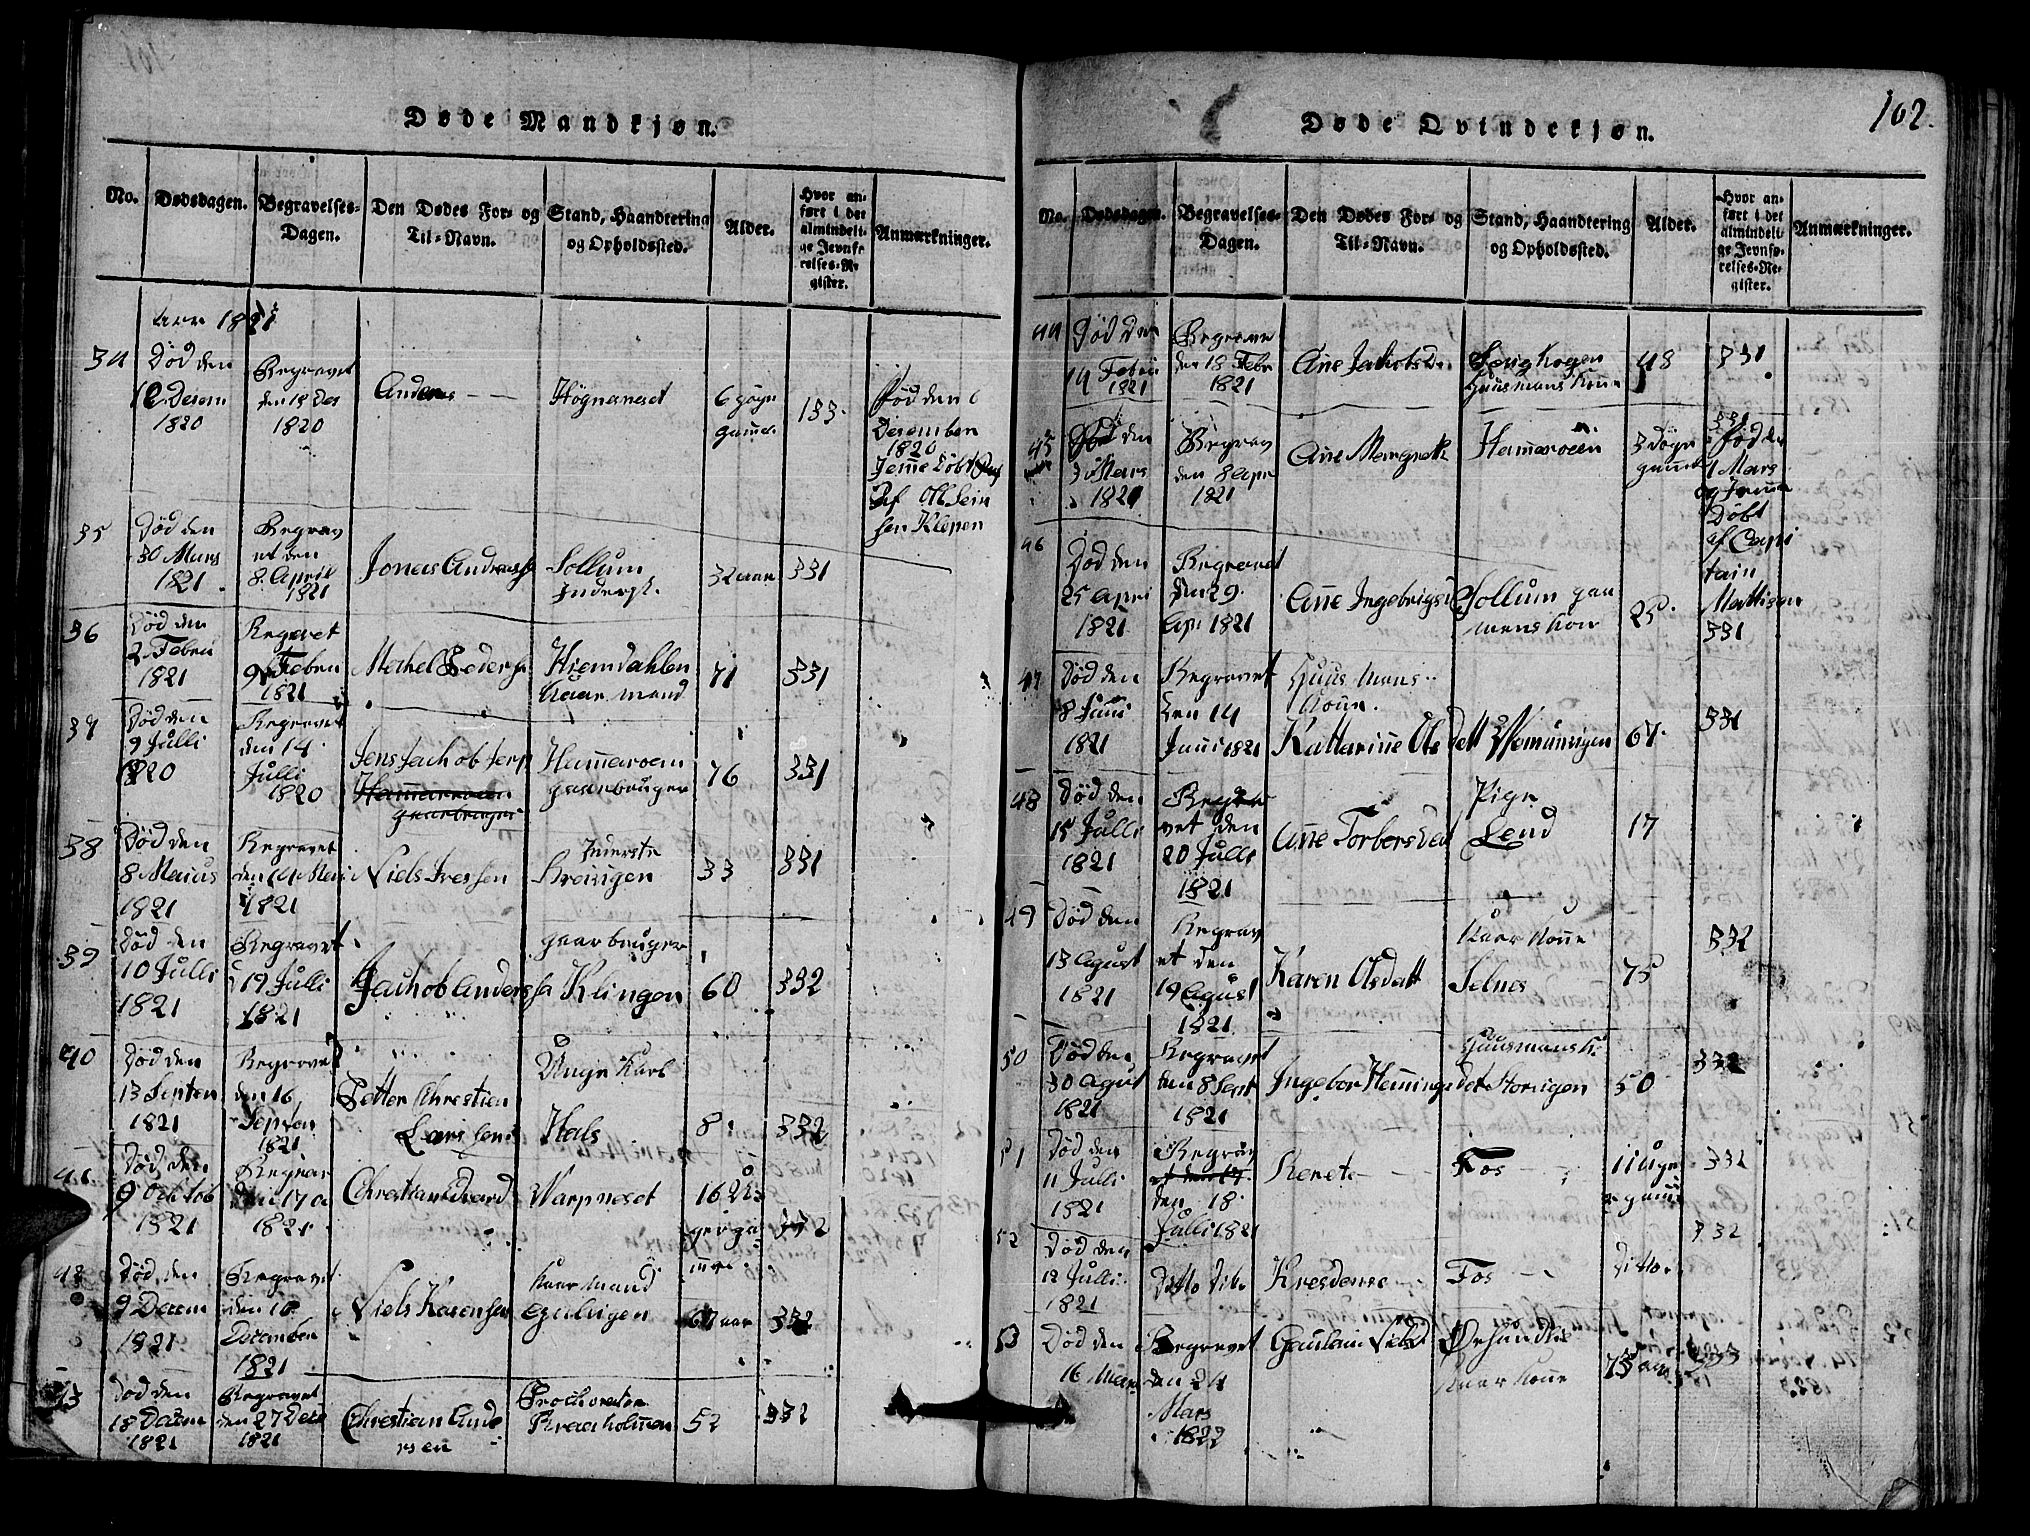 102.
Døde Mandkjøn.
No.
Dødsdagen.
Begravelses-
Dagen.
Den Dødes For- og
Til-Navn.
Stand, Haandtering
og Opholdssted.
Alder.
Hvor an-
ført i det
almindeli-
ge Jevnfø-
relses-Re-
gister.
Anmærkninger.
34
Død den
Decem
1820
Begravet
den 18 Des
1820
Anders
Högnaneset
6 Dögn
gamel
133.
Død den 6
Desember
1820
35
Død den
30 Mars
1821
Begrav
et den
8. April
1821
Jonas Anders
Sollum
Indersk.
32 aar
331
36
Død den
2 Febru
1821
Begravet
9 Febru
1821
Mechel Peders
Hiemdahlen
Kaar mand
71
331
37
Død den
9 Julli
1820
Begravet
den 14
Julli
1820
Jens Jachobsen
Hamaroen
gaarbruger
76
331
38
Død den
8 Maius
1821
Begravet
den 14 Mai
1821
Niels Iversen
Inderste
Brevigen
33
331
39
Død den
10 Julli
1821
Begravet
19 Julli
1821
Jachob Anders
gaarbruger
Klingen
60
332
40
Død den
13 Septem
1821
Begravet
den 16
Septem
1821
Petter Chrestien
Larssen
Unge Karl
Hals
8
332
41
Død den
9 Octob
1821
Begrav
den 17 O
1821
Christian Edvard
Warpneset
332
42
Død den
9 Decem
1821
Begravet
den 16
December
1821
Niels Karensen
Kaarmand
67 aar
332
43
Død den
18 Decem
1821
Begravet
den 27 Dece
1821
Chrestian Ande
rsen
Kraaholmen
52
332
Døde Qvindekjøn.
No.
Dødsdagen.
Begravelses-
Dagen.
Den Dødes For- og
Til-Navn.
Stand, Haandtering
og Opholdssted.
Alder.
Hvor an-
ført i det
almindeli-
ge Jevnfø-
relses-Re-
gister.
Anmærkninger.
44
Død den
14 Febru
1821
Begravet
den 18 Febr
1821
Ane Jakobsd
Huusmans Kone
48
331
45
Død den
3 Mars
1821
Begrav
den 8 Apr
1821
Ane Margrete
Hamaroen
3 Dögn
gamel
331
Fød den
1 Mars
og Jemme
Døbt
af Capi
tain
46
Død den
25 Apri
1821
Begravet
den 29
Apr 1821
Ane Ingebrigsd
Sollum gaa
mans Kon
25
331
47
Død den
8 Juni
1821
Begravet
den 14
Juni 1821
Huus Mans
Kone.
Kattarine Olsdatt
67
331
48
Død den
15 Julli
1821
Begra
vet den
20 Julli
1821
Ane Torbersdat
Pige
Lend
17
49
Død den
13 Agust
1821
Begrav
et den
19 Agust
1821
Karen Olsdatt
Kaar Kone
Selnes
75
332
50
Død den
30 Agust
1821
Begravet
den 8 Sept
1821
Ingebor Heningsdat
Huusmansk.
Storvigen
50
332
51
Død den
11 Julli
1821
Begrav
den 18
Julli 1821
Kerete
Fos
332
52
Død den
12 Julli
1821
Ditto Dito
Kresdense
Fos
Ditto
332
53
Død den
16 Mars
Begravet
den 24
Mars
1822
Kaar Kone
75 aar
333